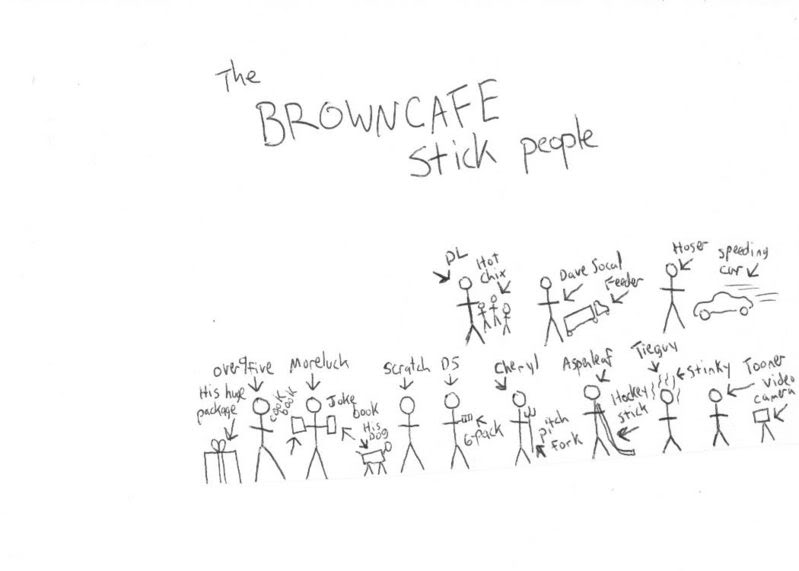 The
BROWNCAFE
Stick people
DL
Hot
chix
Dave Socal
Feeder
Hoser
speeding
car
over9five
His huge
package
Moreluck
cook
book
Joke
book
His
Dog
Scratch
DS
6-pack
Cheryl
pitch
Fork
Aspenleaf
Hockey
stick
Tieguy
Stinky
Tooner
video
camera